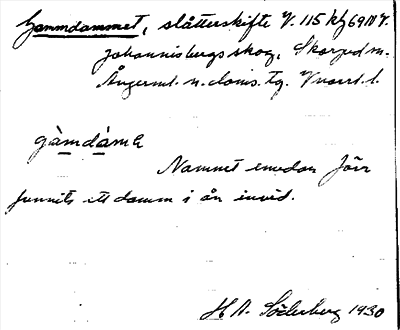 Gammdammet, slåtterskifte V. 115 kfg 69 N V.
Johannisbergs skog, Skorped sn.
Ångerml. n. doms. tg. V norrl. l.
gàmdámɐ
Namnet emedan förr
funnits ett damm i ån invid.
H N. Söderberg 1930